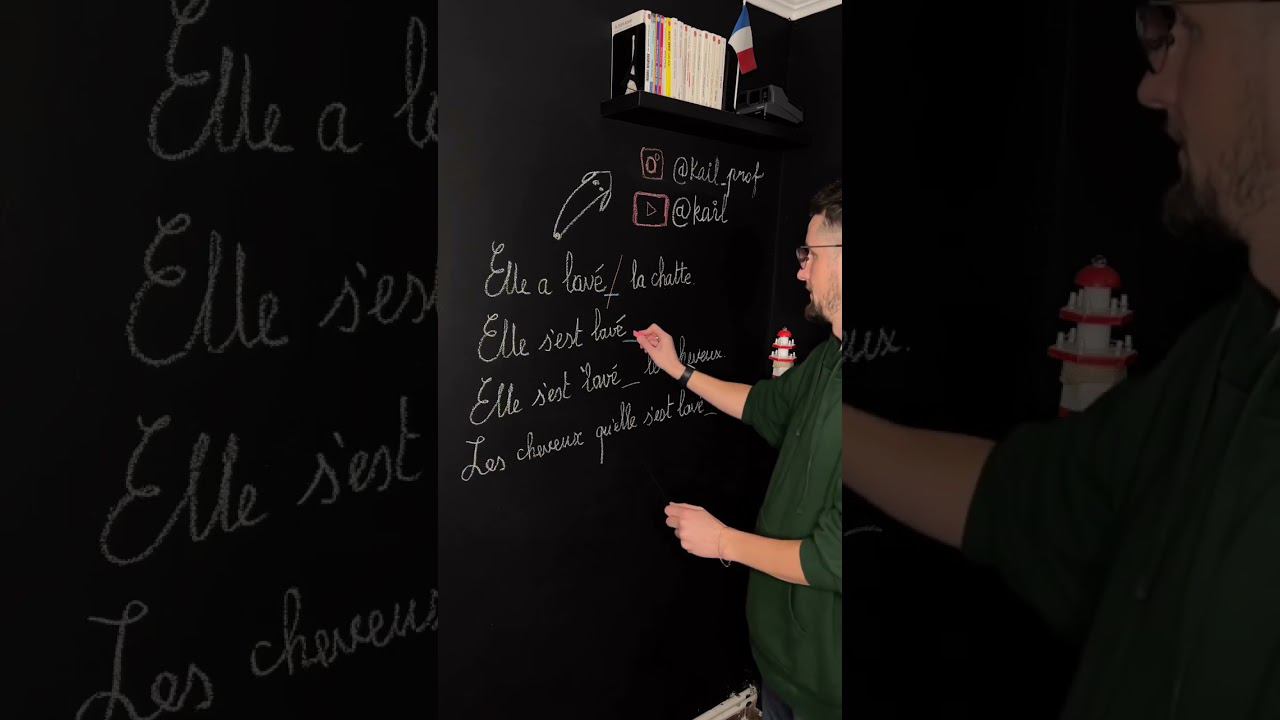 @kail_prof
@kail
Elle a lavé_/ la chatte.
Elle s'est lavé_
Elle s'est lavé_ les cheveux.
Les cheveux qu'elle s'est lavé_